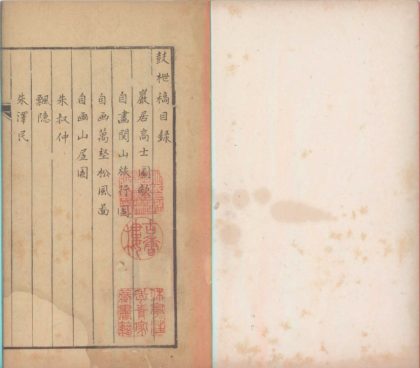 鼓枻稿目錄
巖居高士圖
自畫関山旅行圖
自画萬壑松風圖
自画山屋圖
朱叔仲
飄隐
朱澤民